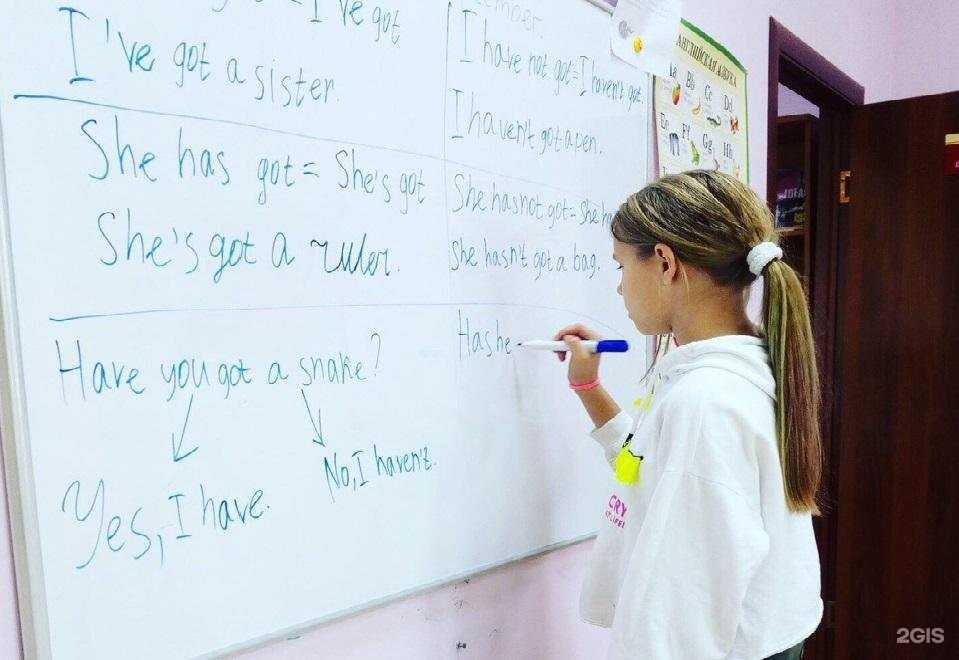 I've got
I've got a sister.
She has got = She's got
She's got a ruler.
Have you got a snake?
Yes, I have.
No, I haven't.
I have not got = I haven't got
I haven't got a pen.
She has not got = She h
She hasn't got a bag.
Has he
АНГЛИЙСКАЯ АЗБУКА
Aa Bb Cc Dd
Ee Ff Gg Hh
CRY
2GIS